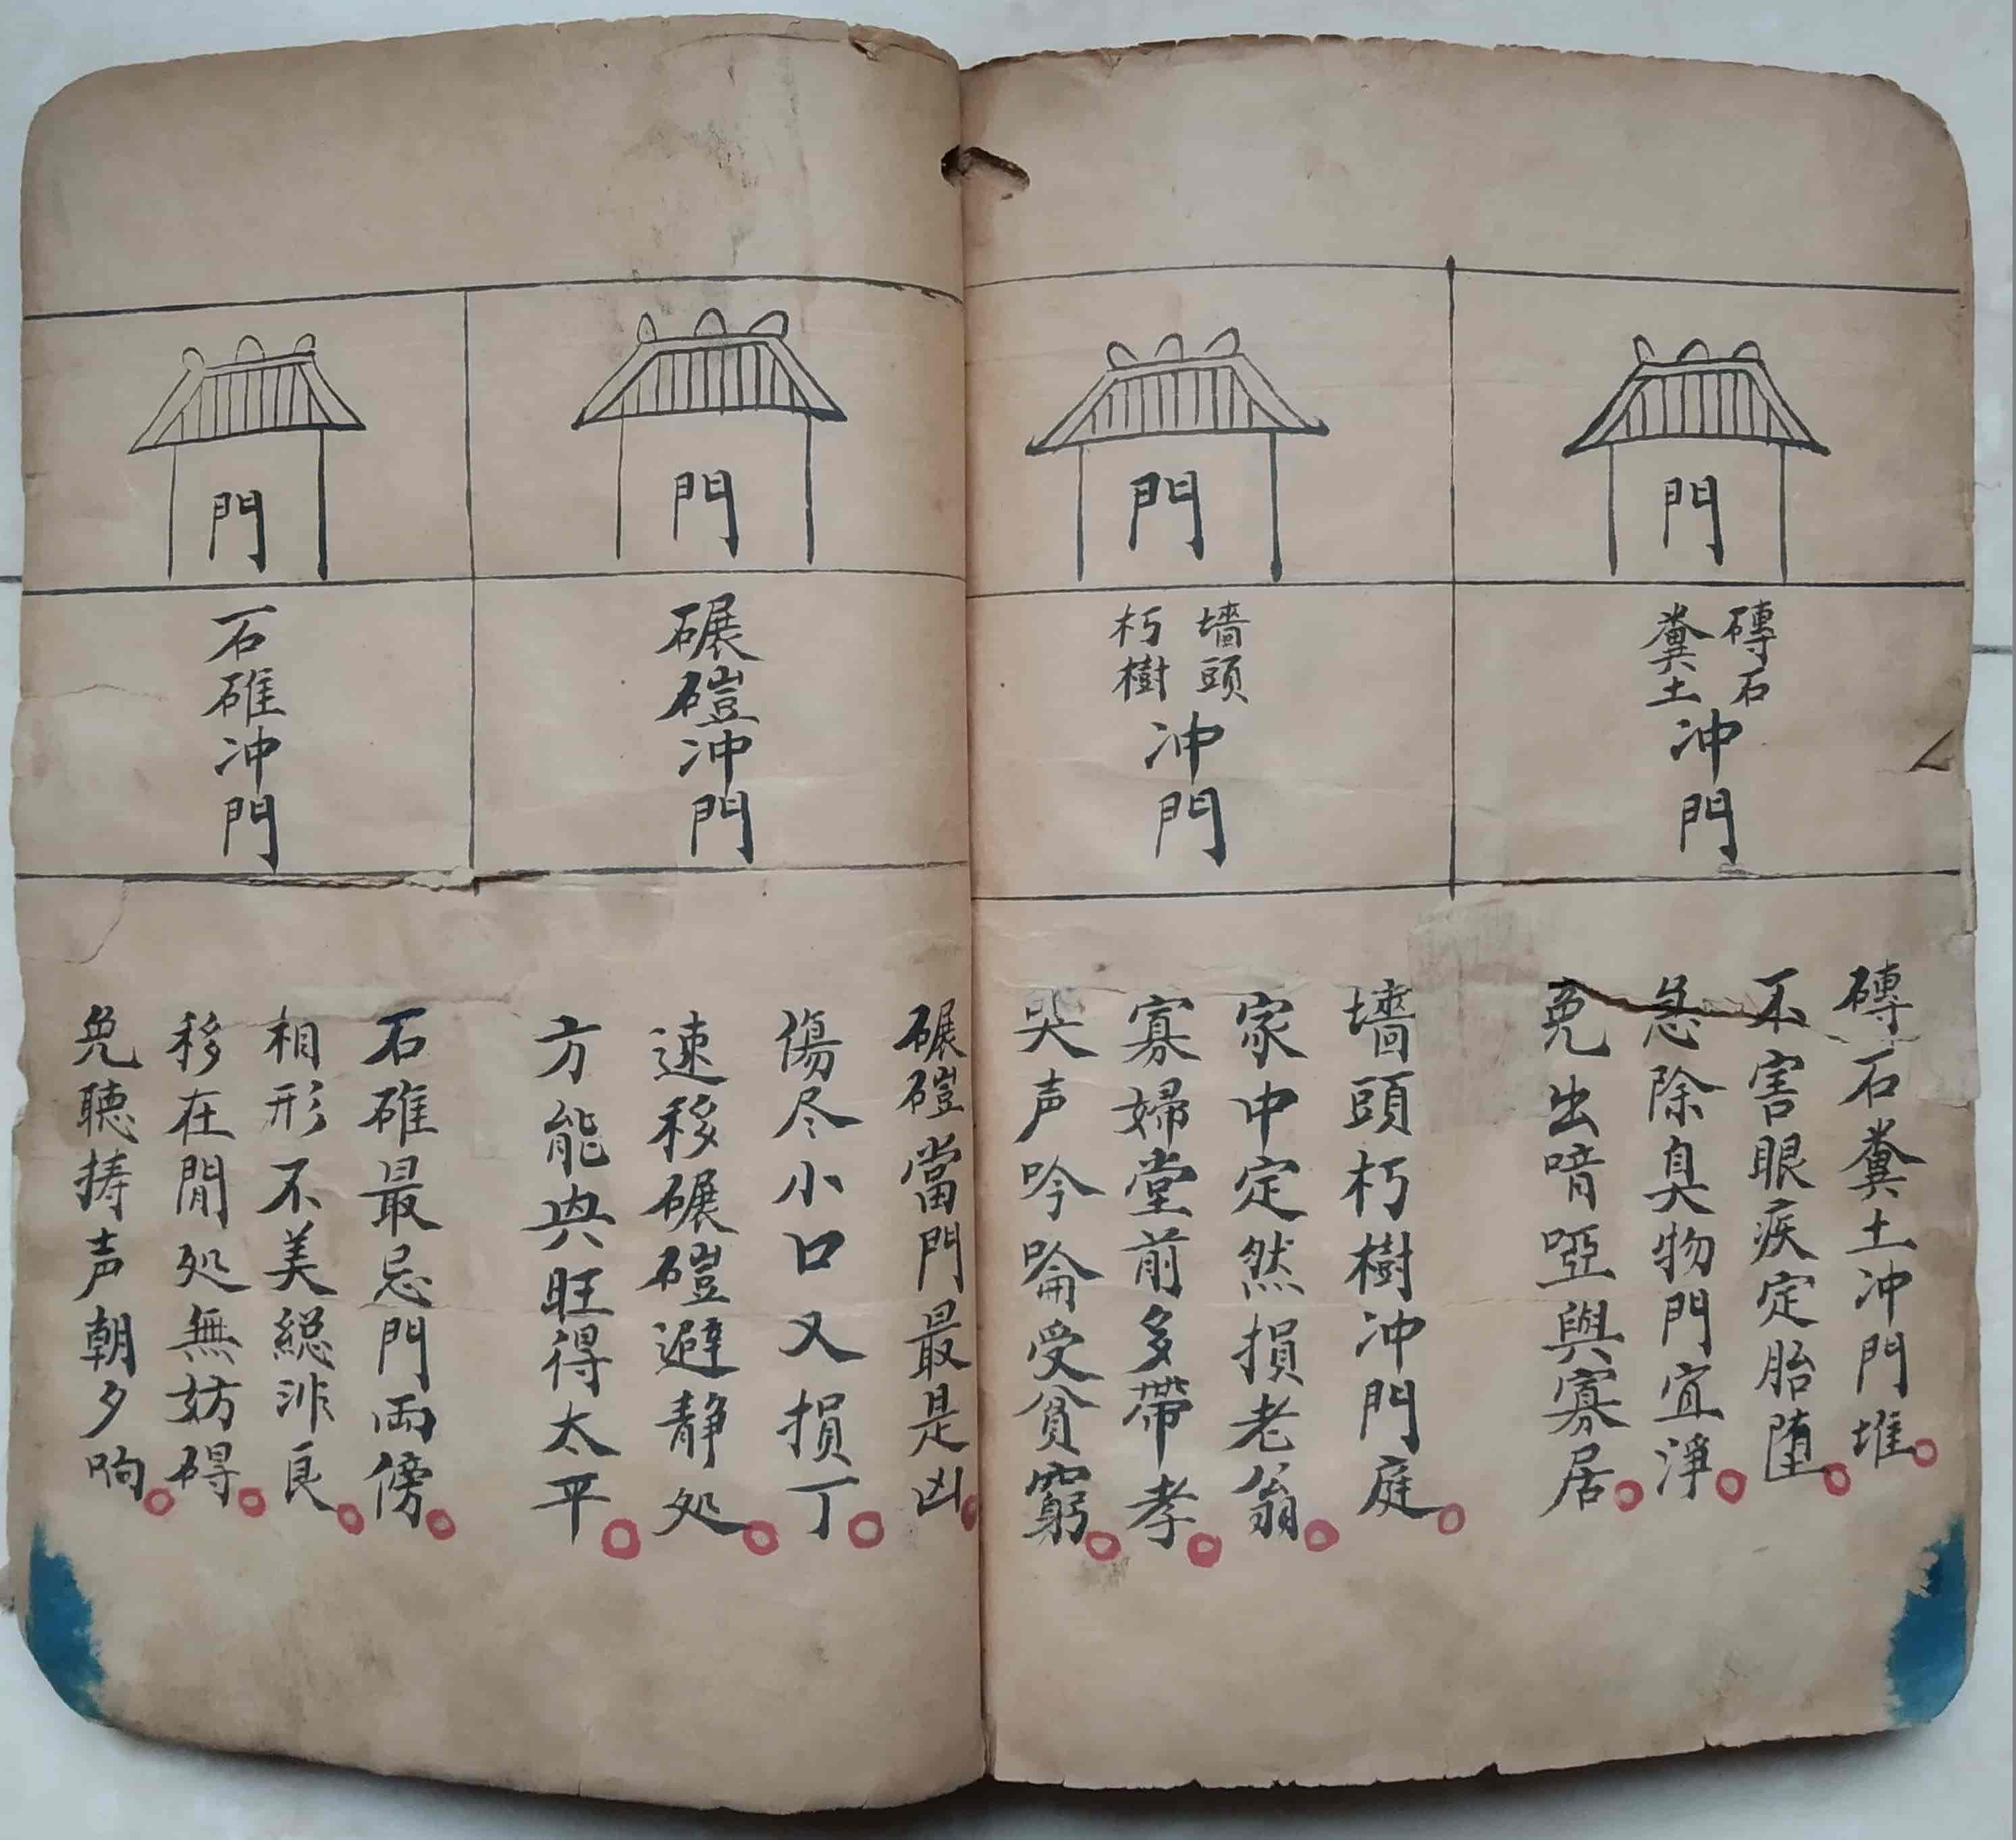 門
磚石
糞土
冲門
磚石糞土冲門堆
不害眼疾定胎堕
急除臭物門宜淨
免出喑啞與寡居
門
墻頭
朽樹
冲門
墻頭朽樹冲門庭
家中定然損老翁
寡婦堂前多帶孝
哭声吟喻受貧窮
門
碾磑冲門
碾磑當門最是凶
傷尽小口又損丁
速移碾磑避静处
方能興旺得太平
門
石碓冲門
石碓最忌門両傍
相形不美総非良
移在閒処無妨碍
免聴擣声朝夕响